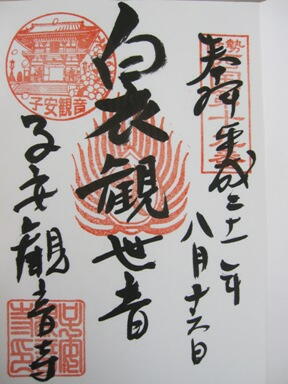 奉拝
平成二十一年
八月十六日
白衣観世音
子安観音寺
子安観音